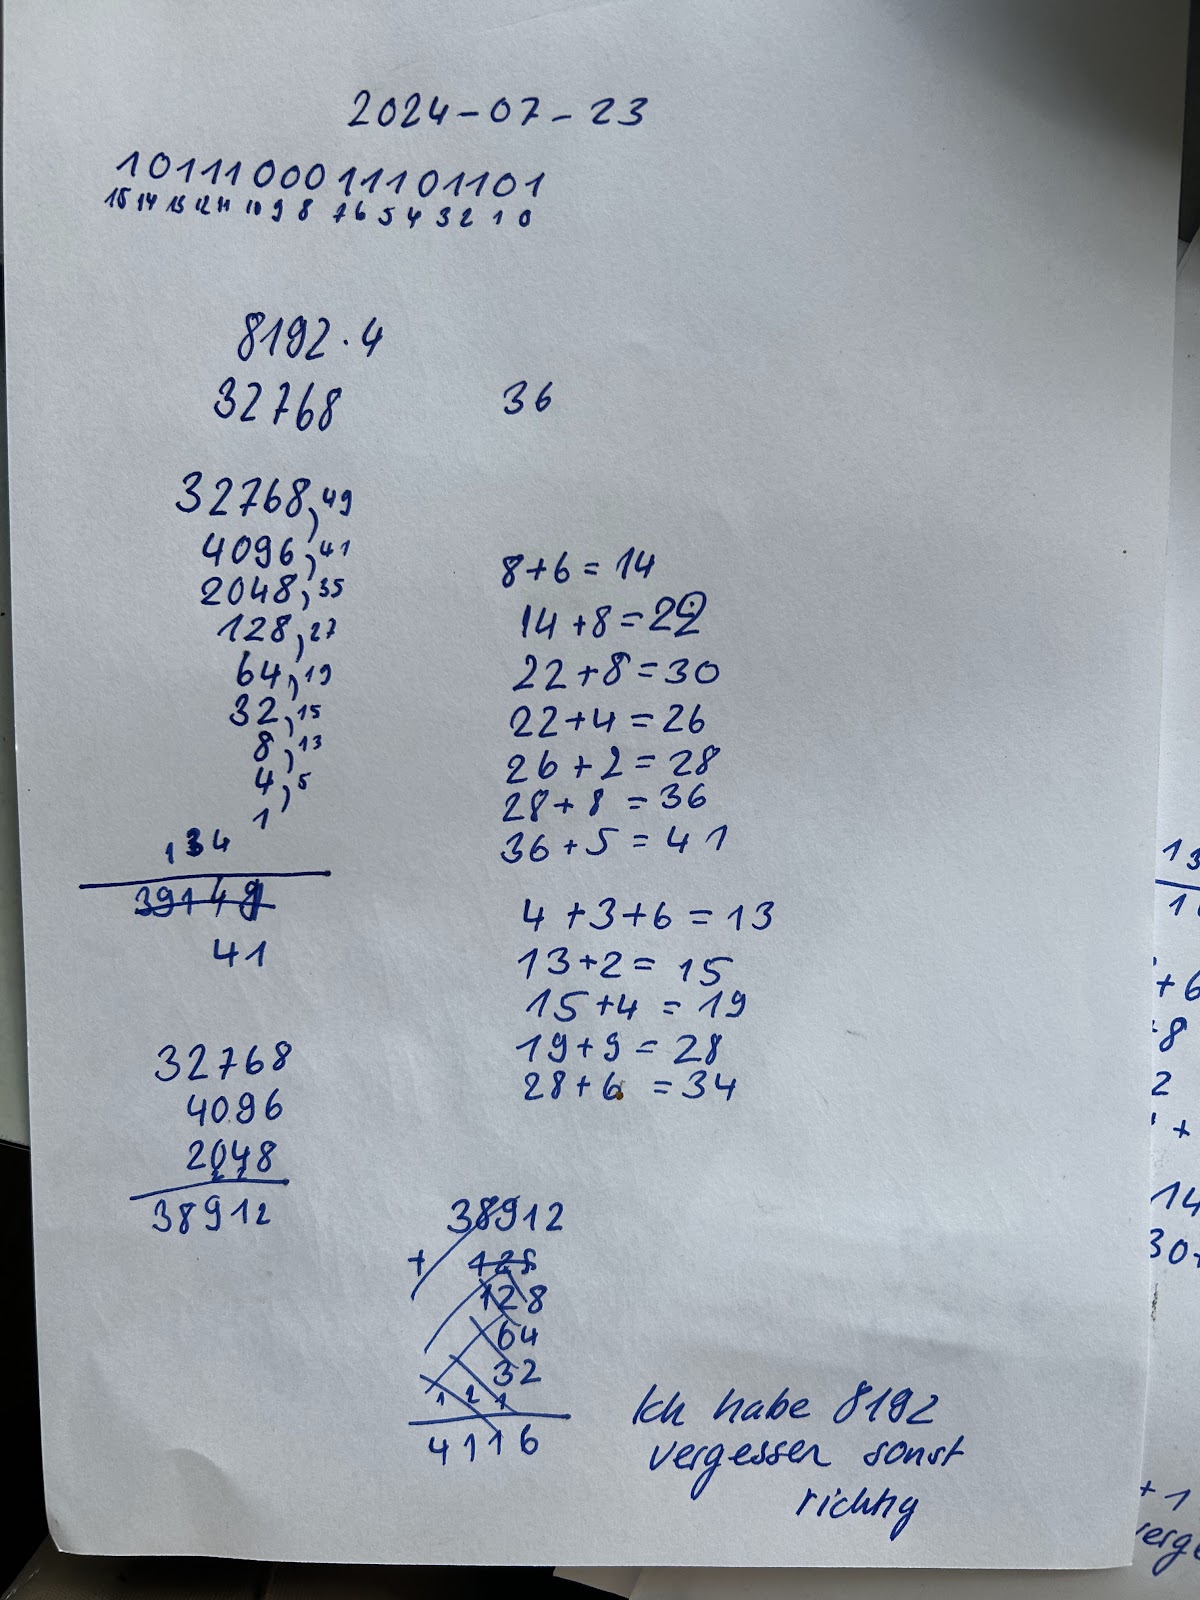 2024-07-23
1011100011101101
15 14 13 12 11 10 9 8 7 6 5 4 3 2 1 0
8192·4
32768
36
32768, 49
4096, 41
2048, 35
128, 27
64, 19
32, 15
8, 13
4, 5
1
134
39149
41
8+6=14
14+8=22
22+8=30
22+4=26
26+2=28
28+8=36
36+5=41
4+3+6=13
13+2=15
15+4=19
19+9=28
28+6=34
32768
4096
2048
38912
38912
+ 128
128
64
32
1 2 1
4116
Ich habe 8192
vergessen sonst
richtig
13
+6
+8
2
+
14
30+
+1